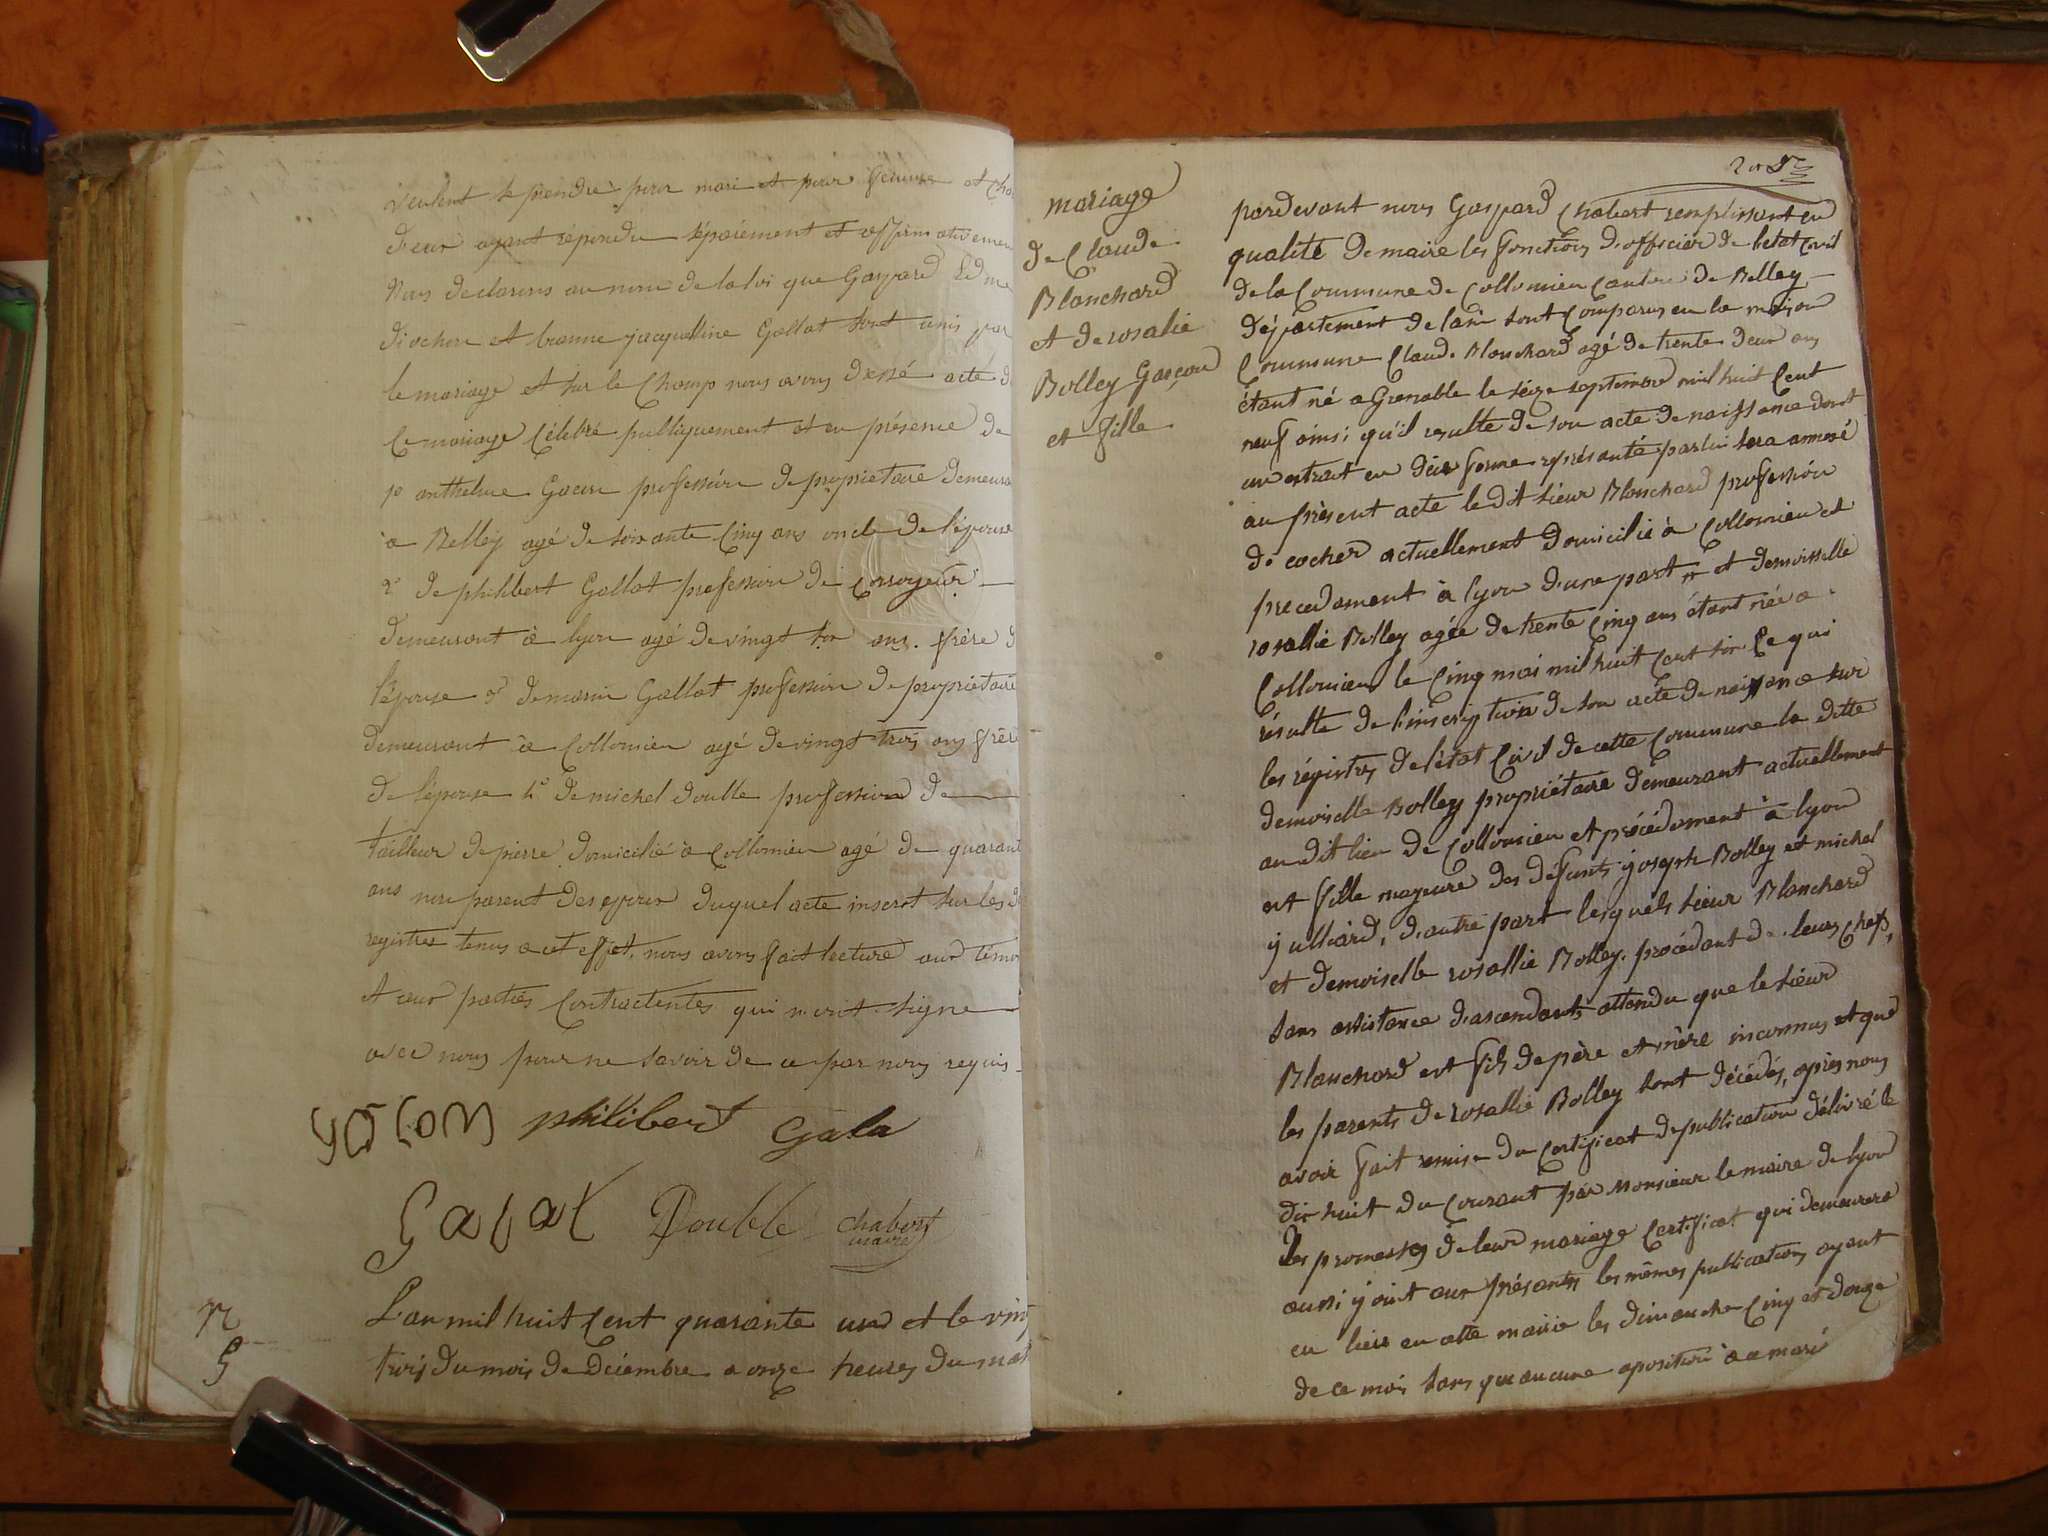 veulent se prendre pour mari et pour femme et cha
d'eux ayant repondu séparément et affirmativemen
Nous declarons au nom de la loi que Gaspard
diochon et jeanne jacqueline Gallat sont unis par
le mariage et sur le Champ nous avons dressé acte d
Ce mariage Célebré publiquement et en présence de
1º anthelme Gacon profession de proprietaire demeura
a Belley agé de soixante Cinq ans oncle de l'épouse
2º de philibert Gallat profession de Corroyeur
demeurant à lyon agé de vingt six ans frère d
l'épouse 3º de marin Gallat profession de proprietaire
demeurant à Collomieu agé de vingt trois ans frère
de l'épouse 4º de michel double profession de
tailleur de pierre domicilié à Collomieu agé de quarant
ans non parent des epoux duquel acte inscrit sur les d
registres tenus a cet effet, nous avons fait lecture aux témo
et aux parties Contractentes qui n'ont signe
avec nous pour ne savoir de ce par nous requis
gacon philibert Gala
Galat Double chabert
maire
N
5
L'an mil huit Cent quarante un et le ving
trois du mois de Décembre a onze heures du mat
mariage
de Claude
Blanchard
et de rosalie
Bolley Garçon
et fille
pardevant nous Gaspard Chabert remplissant en
qualité de maire les fonctions d'officier de l'etat Civil
de la Commune de Collomieu Canton de Belley
département de l'ain sont Comparus en la maison
Commune Claude Blanchard agé de trente deux ans
étant né a Grenoble le séize septembre mil huit Cent
neuf ainsi qu'il resulte de son acte de naissance dont
un extrait en düe forme réprésenté par lui sera annexé
au présent acte le dit sieur Blanchard profession
de cocher actuellement domicilié à Collomieu et
precedament à lyon d'une part et demoisselle
rosallie Bolley agée de trente Cinq ans étant née a
Collomieu le Cinq mai mil huit Cent six Ce qui
résulte de l'inscription de son acte de naissance sur
les régistres de l'état Civil de cette Commune la ditte
demoiselle Bolley propriétaire demeurant actuellement
au dit lieu de Collomieu et précédament à lyon
et fille majeure des défunts joseph Bolley et michel
jullliard, d'autre part lesquels sieur Blanchard
et demoiselle rosallie Bolley procédant de leurs chefs,
sans assistance d'ascendants attendu que le sieur
Blanchard est fils de père et mère inconnus et que
les parents de rosallie Bolley sont décédés, après nous
avoir fait remise du Certificat de publication délivré le
dix huit du Courant par Monsieur le maire de lyon
des promesses de leur mariage Certificat qui demeurera
aussi joint aux présantes les mêmes publications ayant
eu lieu en cette mairie les dimanche Cinq et douze
de ce mois sans qu'aucune aposition à ce mari